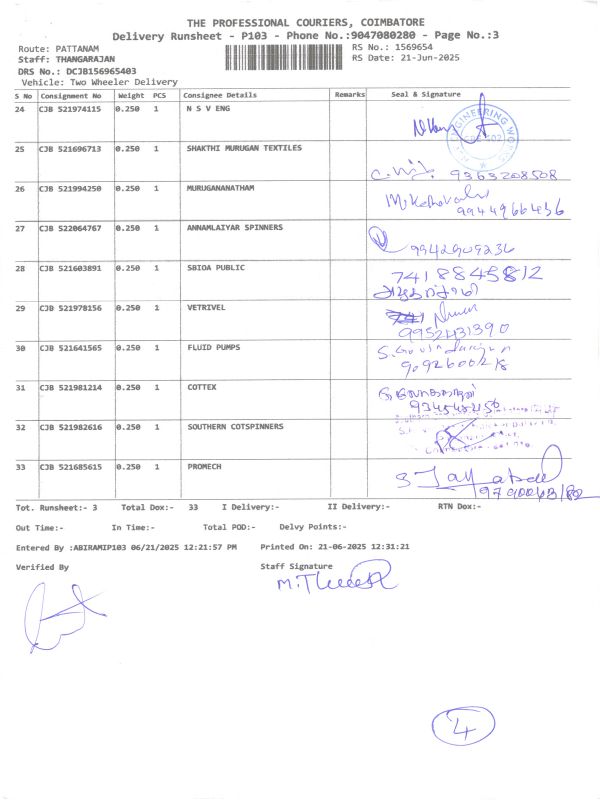 THE PROFESSIONAL COURIERS, COIMBATORE
Delivery Runsheet - P103 - Phone No.:9047080280 - Page No.:3
Route: PATTANAM RS No.: 1569654
Staff: THANGARAJAN RS Date: 21-Jun-2025
DRS No.: DCJB156965403
Vehicle: Two Wheeler Delivery
S No Consignment No Weight PCS Consignee Details Remarks Seal & Signature
24 CJB 521974115 0.250 1 N S V ENG
25 CJB 521696713 0.250 1 SHAKTHI MURUGAN TEXTILES
9363208508
26 CJB 521994250 0.250 1 MURUGANANATHAM
9944966456
27 CJB 522064767 0.250 1 ANNAMLAIYAR SPINNERS
9942909236
28 CJB 521603891 0.250 1 SBIOA PUBLIC 7418845812
29 CJB 521978156 0.250 1 VETRIVEL
9952431390
30 CJB 521641565 0.250 1 FLUID PUMPS
9092600218
31 CJB 521981214 0.250 1 COTTEX
32 CJB 521982616 0.250 1 SOUTHERN COTSPINNERS
33 CJB 521685615 0.250 1 PROMECH
Tot. Runsheet:- 3 Total Dox:- 33 I Delivery:- II Delivery:- RTN Dox:-
Out Time:- In Time:- Total POD:- Delvy Points:-
Entered By :ABIRAMIP103 06/21/2025 12:21:57 PM Printed On: 21-06-2025 12:31:21
Verified By Staff Signature
4